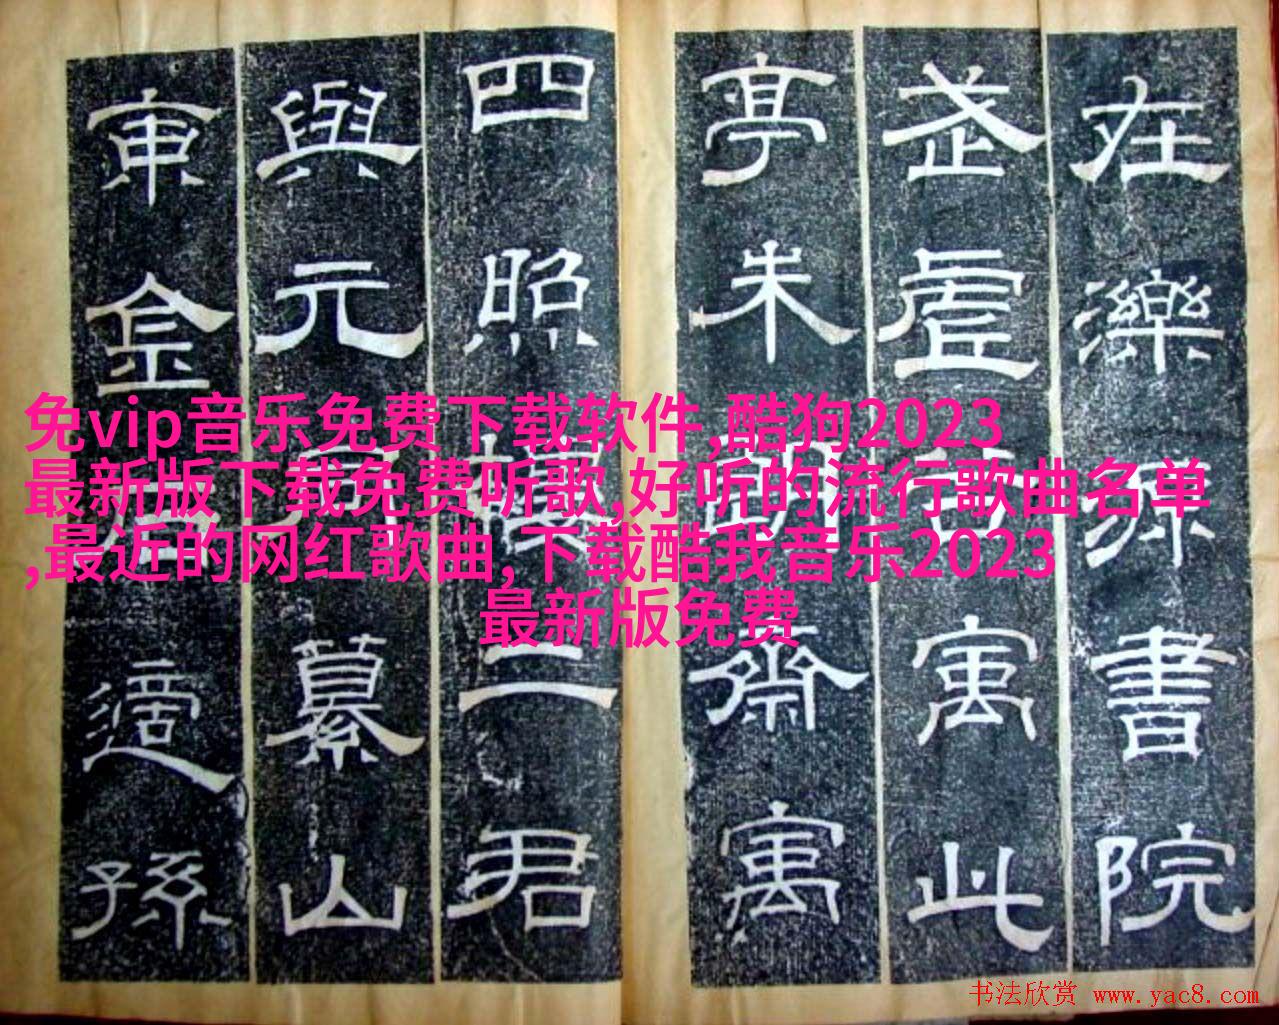 在濼書院
武虛寓此
亭朱朗齋寓
四照樓二君
與元同纂山
東金石適孫
免vip音乐免费下载软件,酷狗2023
最新版下载免费听歌,好听的流行歌曲名单
,最近的网红歌曲,下载酷我音乐2023
最新版免费
书法欣赏 www.yac8.com